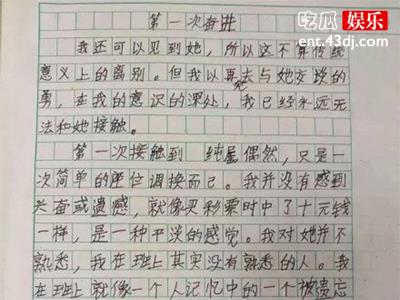 吃瓜 娱乐
ent.43dj.com
第一次奋进
我还可以见到她，所以这不算传统
意义上的离别。但我以再无去与她交谈的
勇，在我的意识的深处，我已经永远无
法和她接触。
第一次接触到 纯属偶然，只是一
次简单的座位调换而已。我并没有感到
兴奋或遗感，就像买彩票时中了十元钱
一样，是一种平淡的感觉。我对她并不
熟悉，我在班上其实没有熟悉的人。我
在班上就像一个人记忆中的一个被遗忘